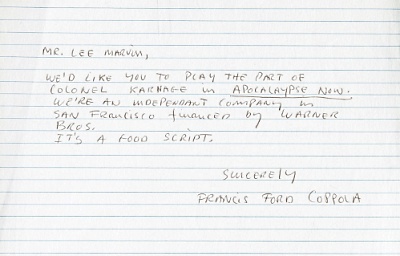 MR. LEE MARVIN,
WE'D LIKE YOU TO PLAY THE PART OF
COLONEL KARNAGE in APOCALAYPSE NOW.
WE'RE AN INDEPENDANT COMPANY in
SAN FRANCISCO financed by WARNER
BROS.
IT'S A GOOD SCRIPT.
SINCERELY
FRANCIS FORD COPPOLA